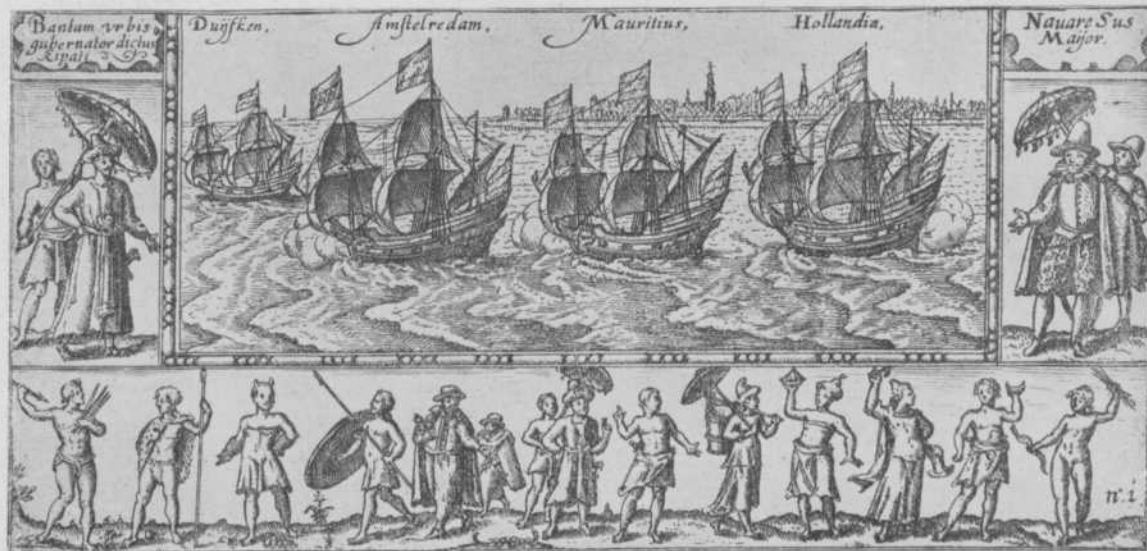 Bantam vrbis
gubernator dictus
Kipati
Duijfken.
Amstelredam.
Mauritius.
Hollandia.
Navare Sus
Maijor.
n.º 1